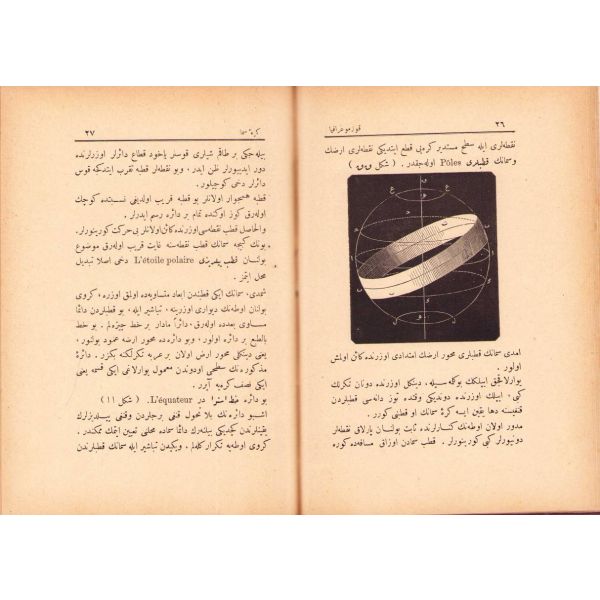 ٢٦
قوزموغرافيا
نقطه‌لری ايله سطح مستدير كره‌يی قطع ايتديكی نقطه‌لری ارضك
وسمانك قطبلری Pôles اوله‌جقدر . ( شكل
امدی سمانك قطبلری محور ارضك امتدادی اوزرنده كائن اولمش
اولور .
يوارلاقجق ايپلك بوكلمه سيله ، ديكلی اوزرنده دونان تكرلك
كبی ، ايپلك اوزرنده دونديكی وقتده توز دانه‌سی قطبلردن
قنغيسنه دها يقين ايسه كرهٔ سمانك او قطبنی كورر .
مدور اولان اوطه‌نك كنارلرنده ثابت بولنان پارلاق نقطه‌لر
دونيورلر كبی كورينورلر . قطب سمادن اوزاق مسافه‌ده كوره
كرهٔ سما
٢٧
بيله‌جكی بر طاقم شيلری قوسلر ياخود قطاع دائرلر اوزرلرنده
دور ايديیورلر ظن ايدر ، وبو نقطه‌لر قطبه تقرب ايتدكجه قوس
دائرلر دخی كوچيلور .
قطبه همجوار اولانلر بو قطبه قريب اولديغی نسبتده كوچك
اوله‌رق كوز اوكنده تمام بر دائره رسم ايدرلر .
والحاصل قطب نقطه‌سی اوزرنده كائن اولانلر بی حركت كورينورلر .
بونك كيجه سمانك قطب نقطه‌سنه غايت قريب اوله‌رق موضوع
بولنان قطب ييلديزی L'étoile polaire دخی اصلا تبديل
محل ايتمز .
شمدی ، سمانك ايكی قطبندن ابعاد متساويه‌ده اولمق اوزره ، كروی
بولنان اوطه‌نك ديواری اوزرينه ، تباشير ايله ، بو قطبلردن دائما
مساوی بعدده اوله‌رق ، دائراً مادار بر خط چيزه‌لم . بو خط
بالطبع بر دائره اولور ، وبو دائره‌ده محور ارضه عمود بولنور ،
يعنی ديكلی محور ارض اولان بر عربه تكرلكنه بكزر . دائرهٔ
مذكوره‌نك سطحی اودوندن معمول يوارلاغی ايكی قسمه يعنی
ايكی نصف كره‌يه آيرر .
بو دائره خط استوا در L'équateur . ( شكل ١١ )
اشبو دائره‌نك بلا تحول قنغی برجلردن وقنغی ييلديزلرك
يقينلرندن كچديكی بيلنه‌رك دائما سماده محلنی تعيين ايتمك ممكندر .
كروی اوطه‌يه تكرار كله‌لم . ويكيدن تباشير ايله سمانك قطبلرندن